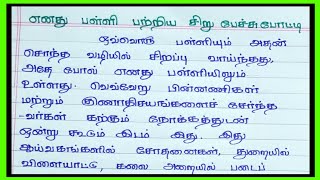 எனது பள்ளி பற்றிய சிறு பேச்சு போட்டி
ஒவ்வொரு பள்ளியும் அதன்
சொந்த வழியில் சிறப்பு வாய்ந்தது,
அதே போல் எனது பள்ளியிலும்
உள்ளது. வெவ்வேறு பின்னணிகள்
மற்றும் குணாதிசயங்களைச் சேர்ந்த
-வர்கள் கற்கும் நோக்கத்துடன்
ஒன்று கூடும் இடம் இது. இது
ஆய்வகங்களில் சோதனைகள், துறையில்
விளையாட்டு, கலை அறையில் படைப்